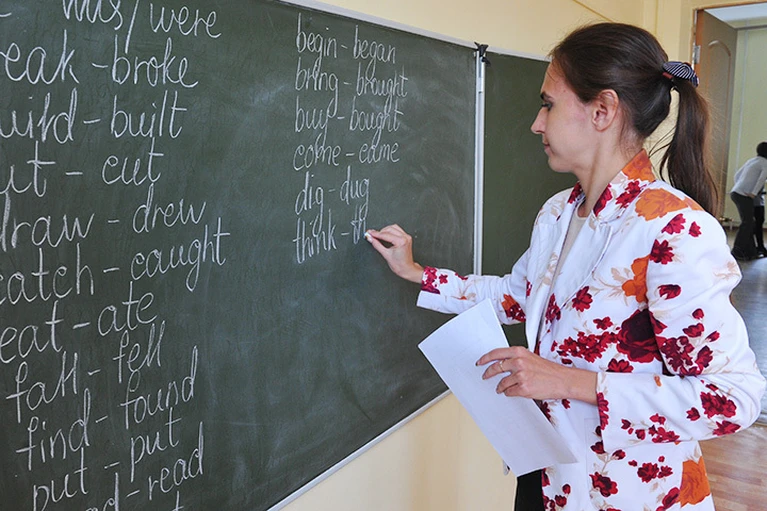 was/were
reak - broke
uild - built
ut - cut
draw - drew
catch - caught
eat - ate
fall - fell
find - found
put - put
read - read
begin - began
bring - brought
buy - bought
come - came
dig - dug
think - th